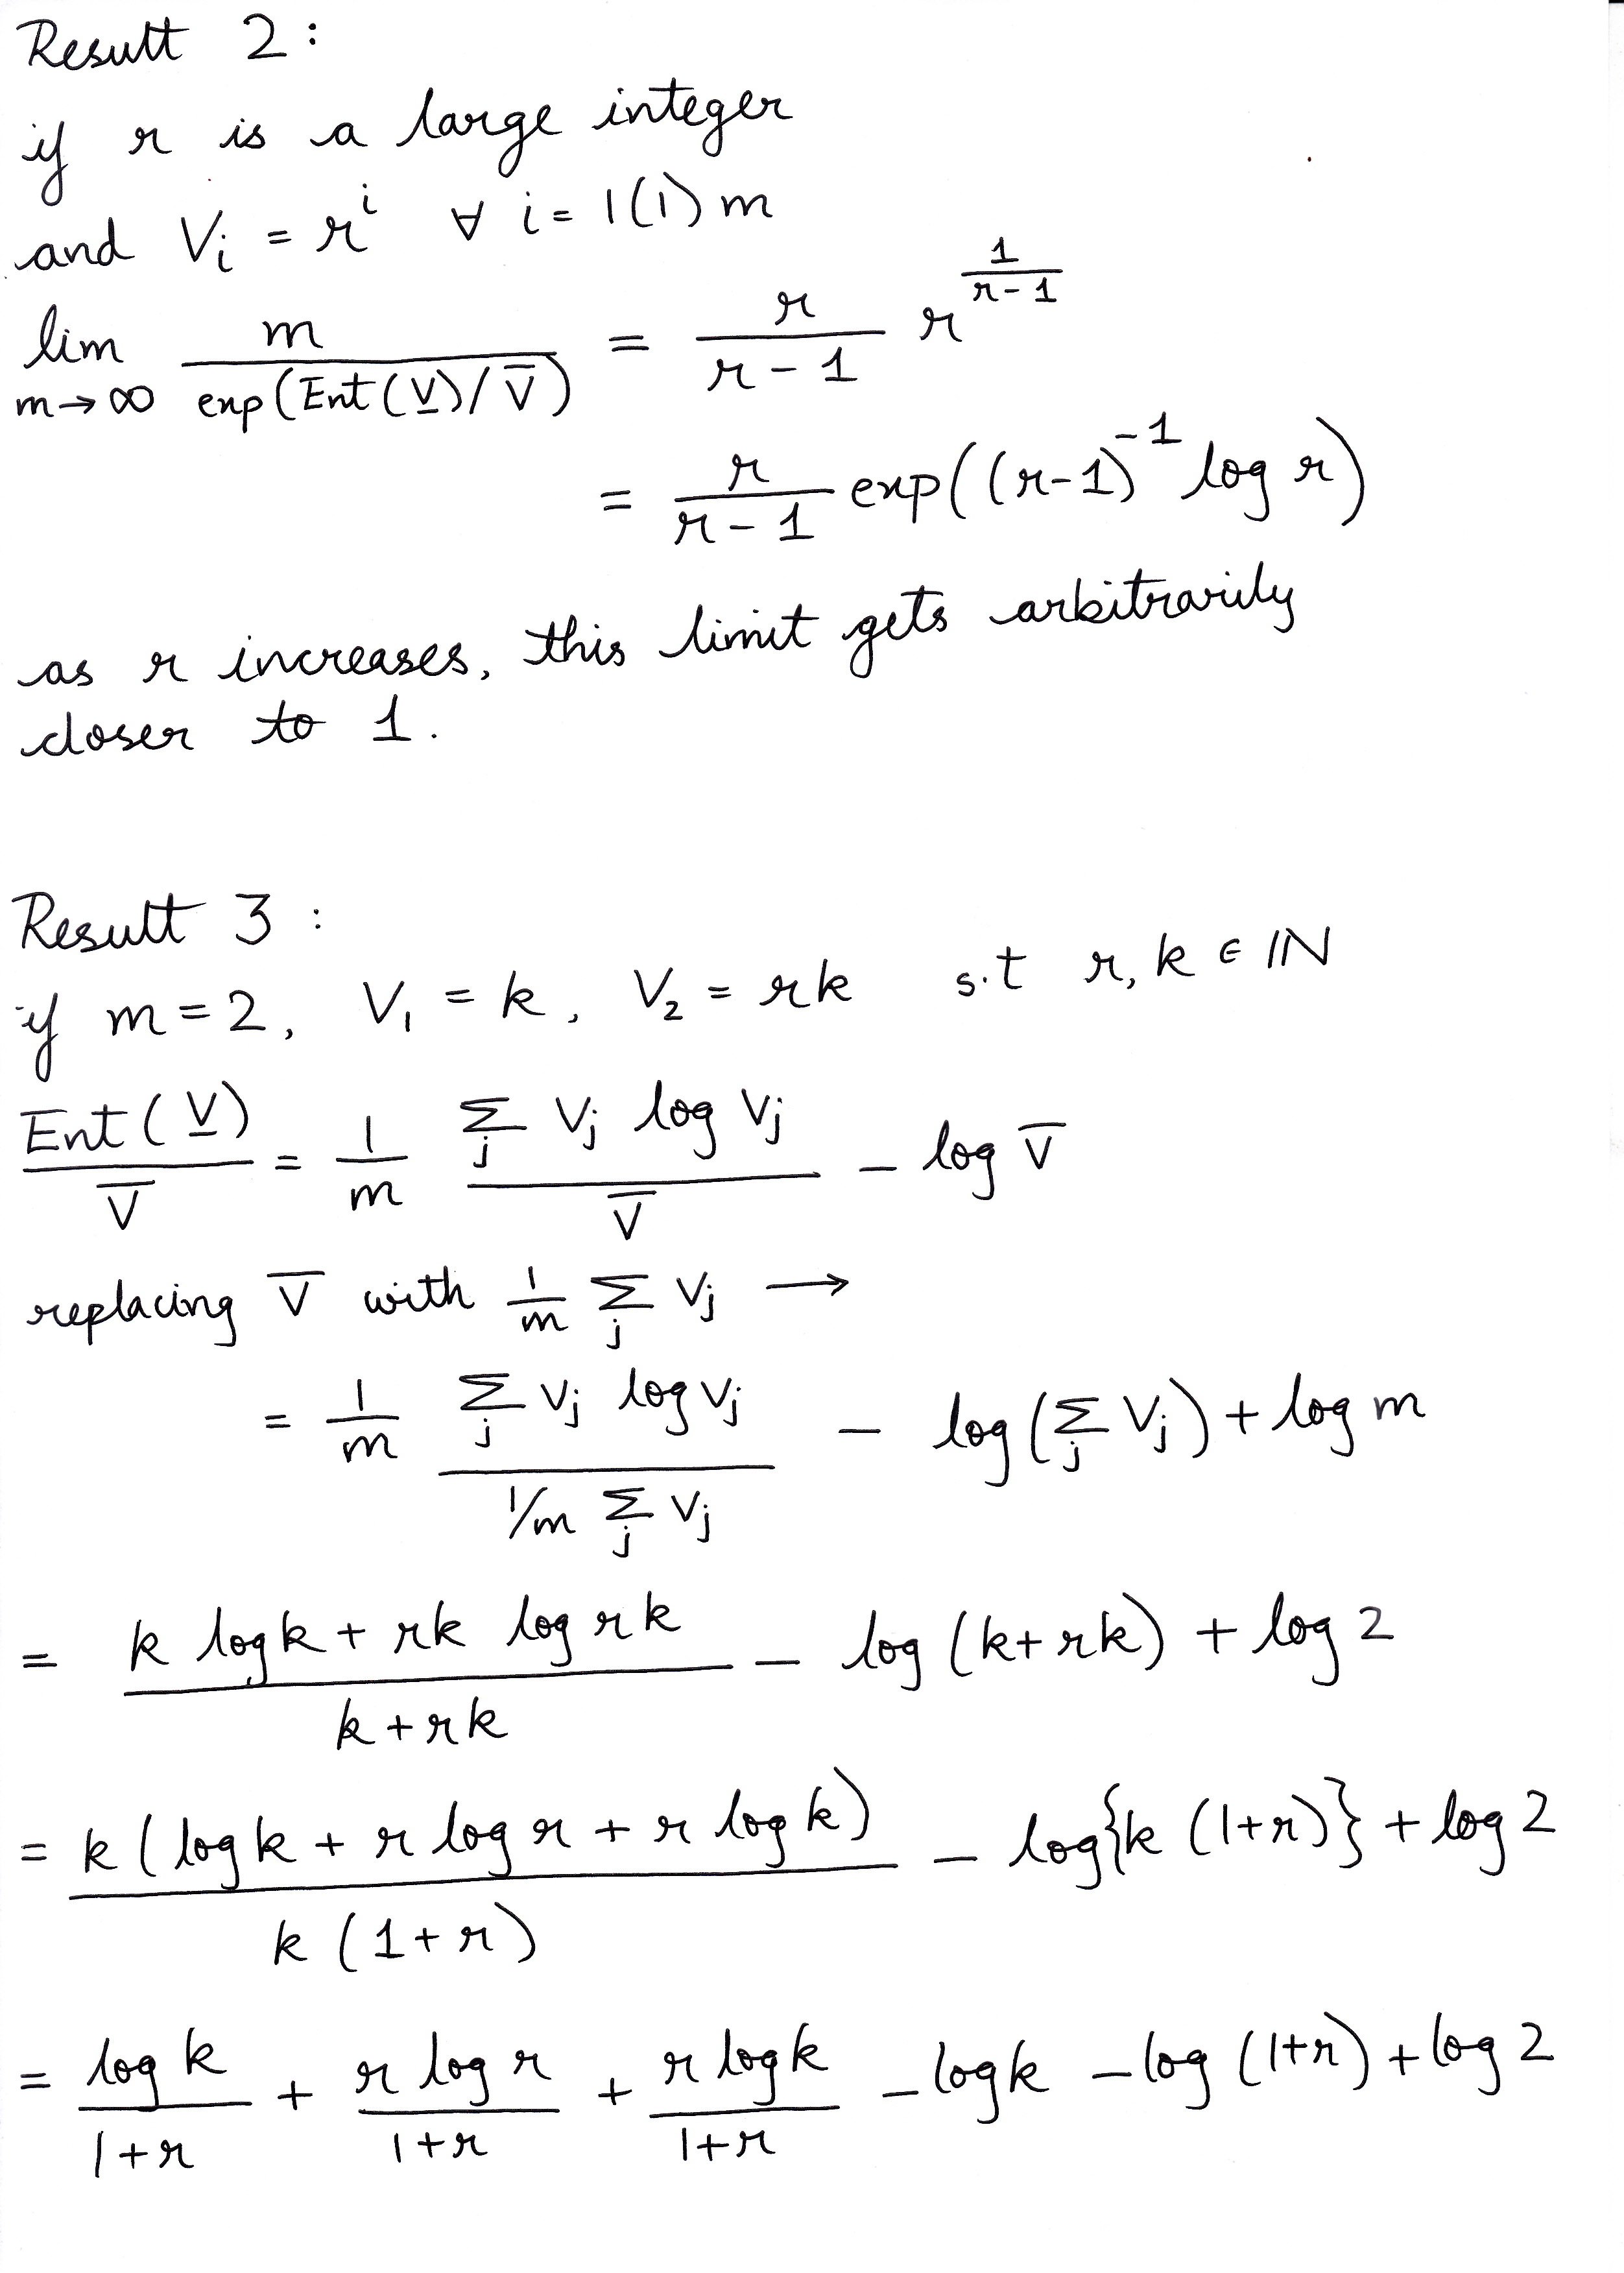 Result 2 :
if r is a large integer
and V_i = r^i ∀ i = 1(1) m
lim_{m→∞} m / exp(Ent(V̲)/V̅) = r/(r-1) r^{1/(r-1)}
= r/(r-1) exp((r-1)^{-1} log r)
as r increases, this limit gets arbitrarily
closer to 1.
Result 3 :
if m = 2, V_1 = k, V_2 = rk s.t r, k ∈ ℕ
Ent(V̲)/V̅ = 1/m (Σ_j V_j log V_j)/V̅ - log V̅
replacing V̅ with 1/m Σ_j V_j →
= 1/m (Σ_j V_j log V_j)/(1/m Σ_j V_j) - log(Σ_j V_j) + log m
= (k log k + rk log rk)/(k + rk) - log (k + rk) + log 2
= k(log k + r log r + r log k)/(k (1 + r)) - log{k (1+r)} + log 2
= log k/(1+r) + r log r/(1+r) + r log k/(1+r) - log k - log (1+r) + log 2